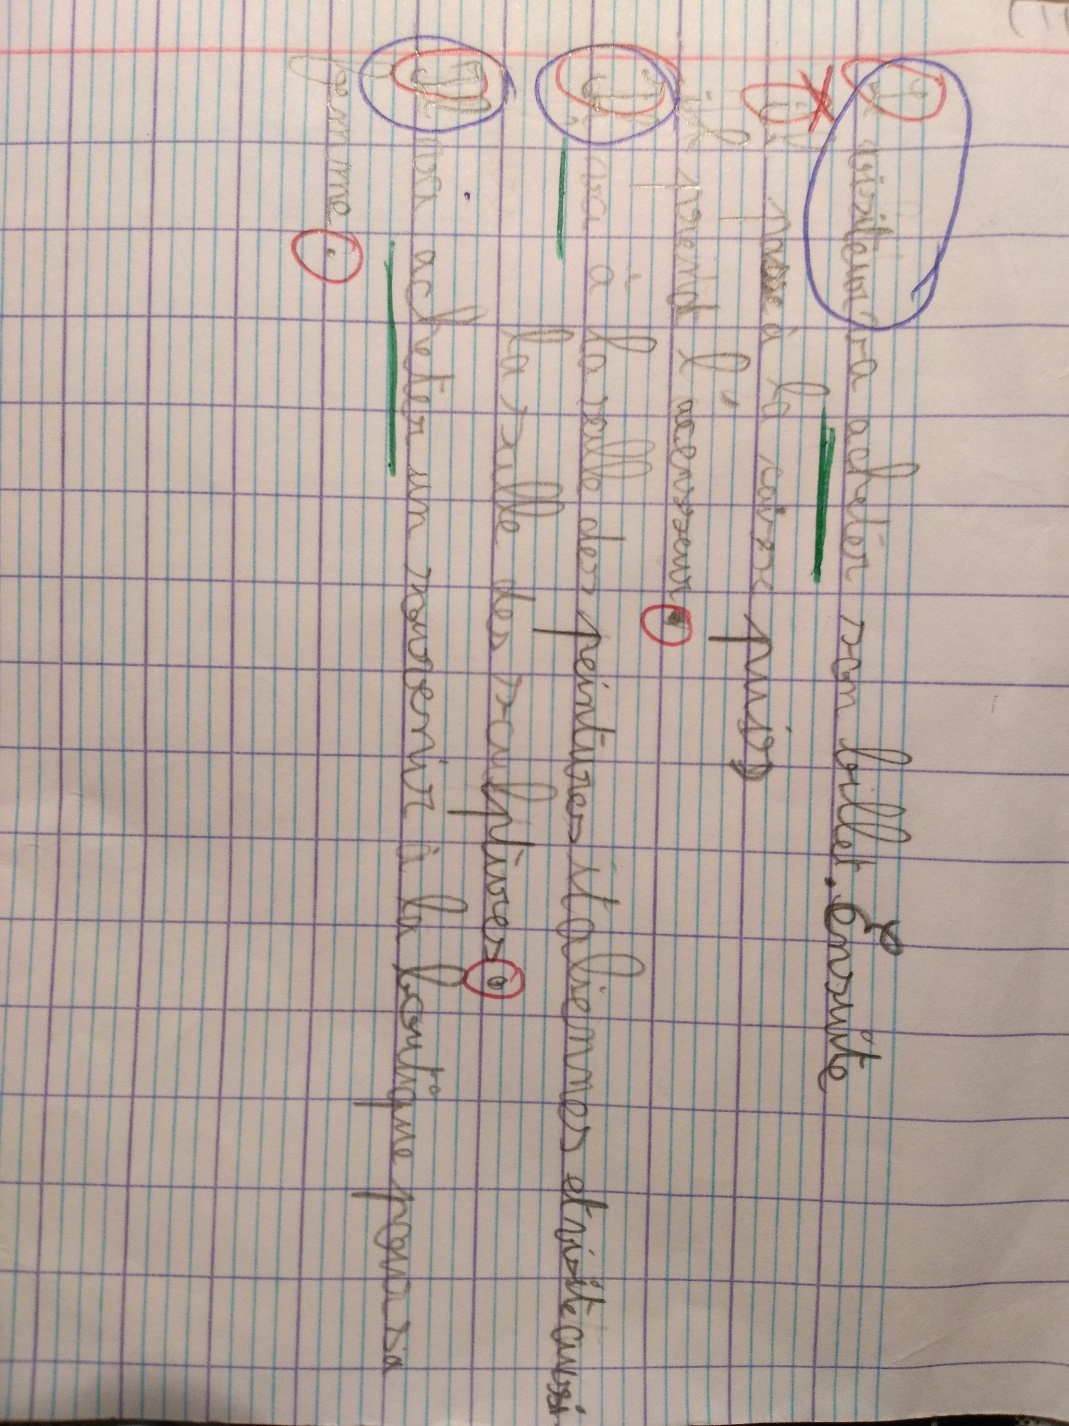 Le visiteur va acheter son billet. Ensuite
il passe à la caisse puis
il prend l'ascenseur.
Il va à la salle des peintures italiennes et visite aussi
la salle des sculptures.
Il va acheter un souvenir à la boutique pour sa
femme.